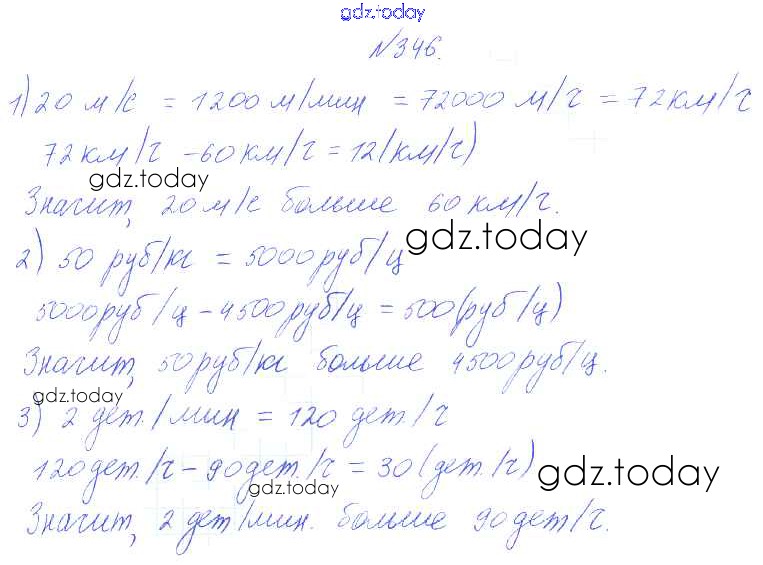 gdz.today
№346.
1) 20 м/с = 1200 м/мин = 72000 м/ч = 72км/ч
72км/ч - 60км/ч = 12(км/ч)
gdz.today
Значит, 20м/с больше 60км/ч.
gdz.today
2) 50 руб/кг = 5000руб/ц
5000руб/ц - 4500руб/ц = 500(руб/ц)
Значит, 50руб/кг больше 4500руб/ц.
gdz.today
3) 2 дет./мин = 120дет./ч
120дет./ч - 90дет./ч = 30(дет./ч)
gdz.today
gdz.today
Значит, 2 дет/мин. больше 90дет/ч.